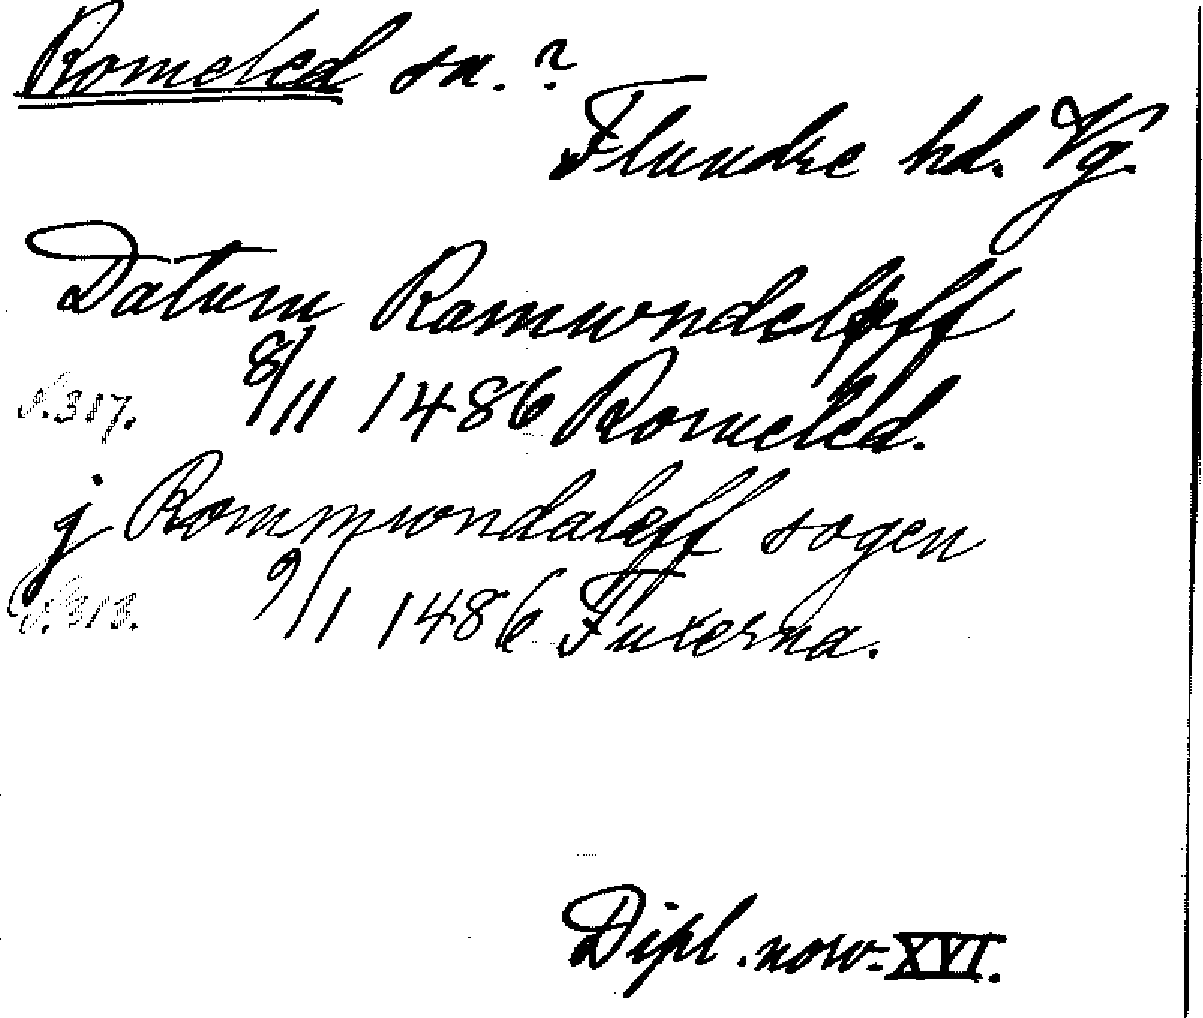 Romeled sn.?
Flundre hd. Vg.
Datum Ramwndeleff
S. 387. 8/11 1486 Romeled.
j Rommwndaleff sogen
S. 313. 9/1 1486 Fuxerna.
Dipl. norv. XVI.